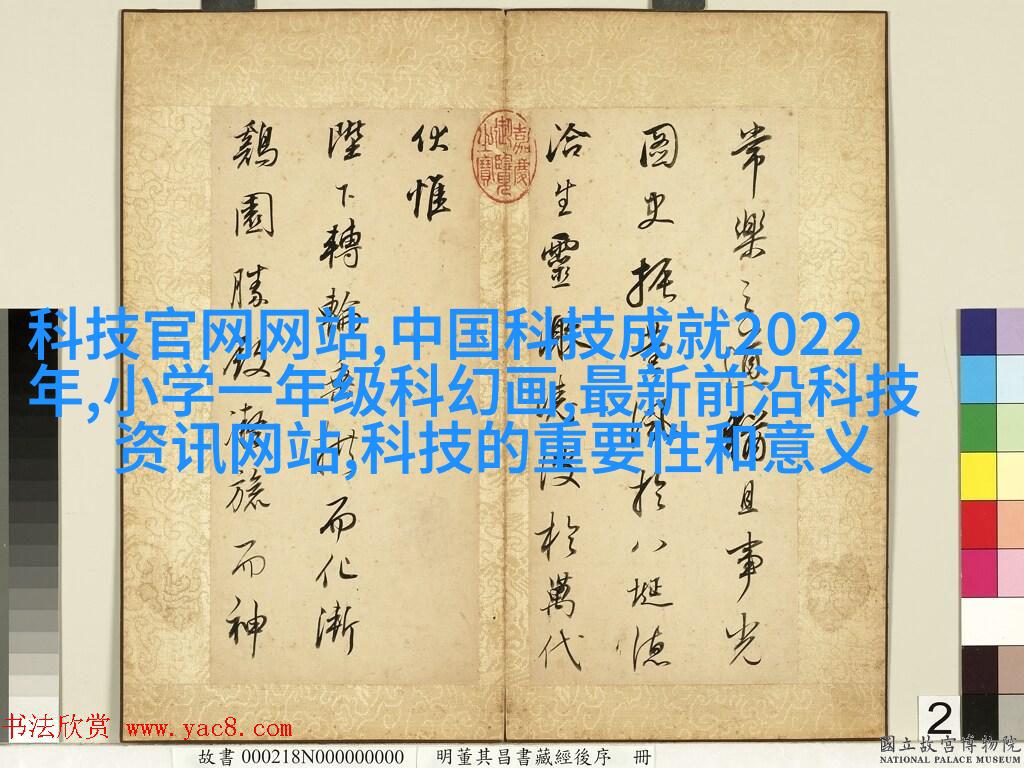 常樂之猶且事光
圖史振風於八埏德
洽生靈波於萬代
伏惟
陛下轉輪垂拱而化漸
鷄園勝殿凝旒而神
嘉慶御覽之寶
科技官网网站,中国科技成就2022
年,小学一年级科幻画,最新前沿科技
资讯网站,科技的重要性和意义
书法欣赏 www.yac8.com
故書 000218N000000000 明董其昌書藏經後序 冊
2
國立故宮博物院
NATIONAL PALACE MUSEUM